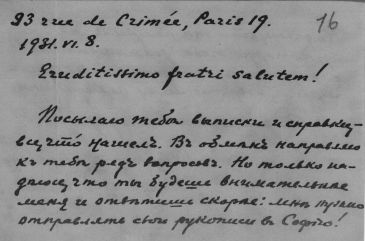 93 rue de Crimée, Paris 19. 16
1931.VI.8.
Eruditissimo fratri salutem!
Посылаю тебѣ выписки и справки,—
все, что нашелъ. Въ обмѣнъ направляю
къ тебѣ рядъ вопросовъ. Но только на-
дѣюсь, что ты будешь внимательнѣе
меня и отвѣтишь скорѣе: мнѣ нужно
отправлять свои рукописи въ Софію!